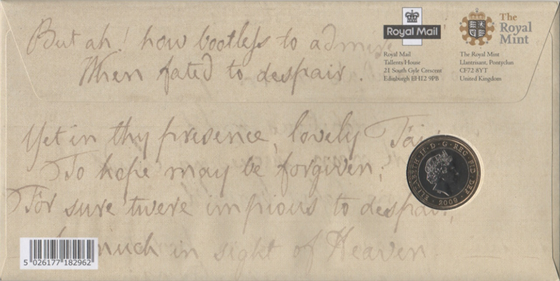 But ah! how bootless to admire
When fated to despair.
Royal Mail
The
Royal
Mint
Royal Mail
Tallents House
21 South Gyle Crescent
Edinburgh EH12 9PB
The Royal Mint
Llantrisant, Pontyclun
CF72 8YT
United Kingdom
Yet in thy presence, lovely Fair,
To hope may be forgiven,
For sure twere impious to despair,
much in sight of Heaven
ELIZABETH II D G REG F D
2009
5 026177 182962